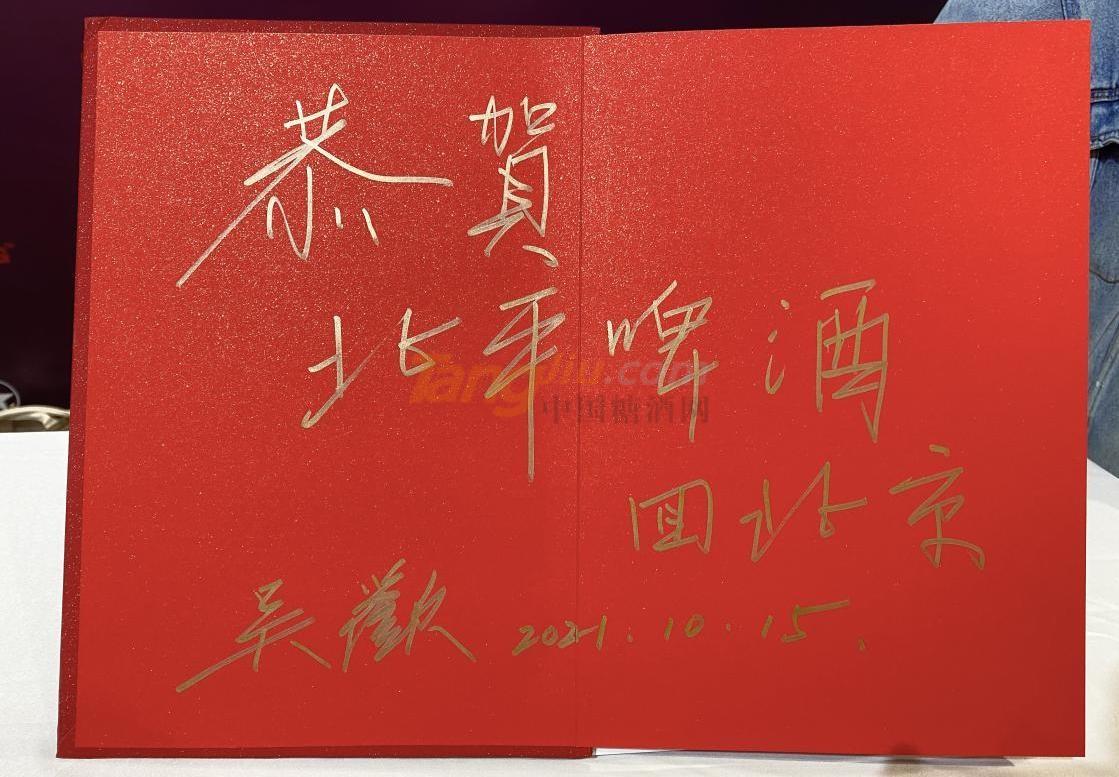 恭賀
北平啤酒
Tangjiu.com
中国糖酒网
回北京
吴歡 2021.10.15.